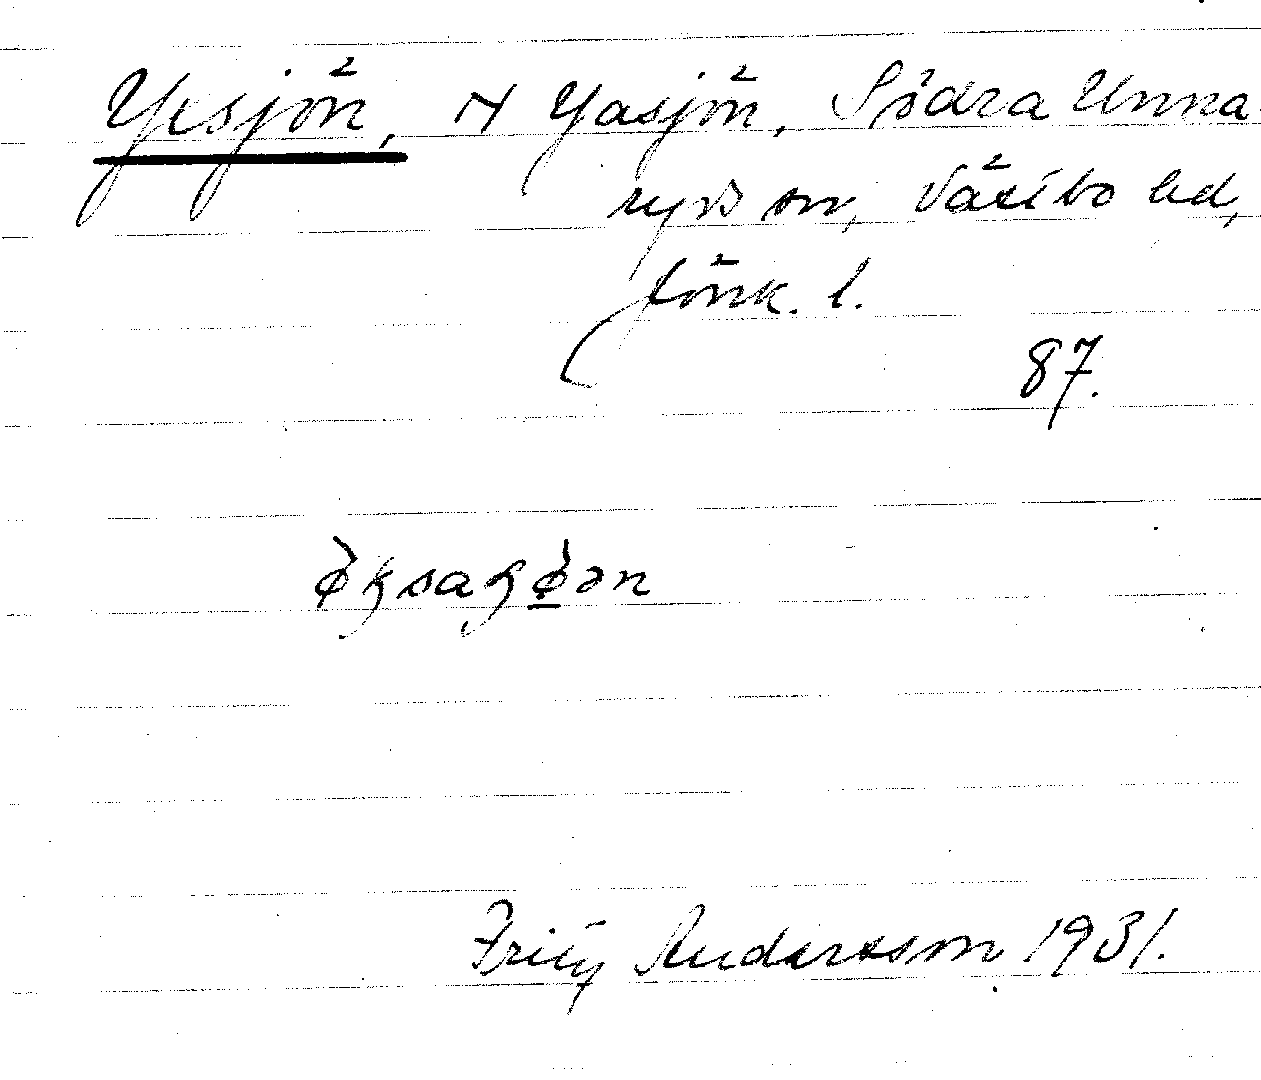 Yxsjön, N Yasjön, Södra Unna-
ryds sn, Västbo hd,
Jönk. l.
87.
Fritz Andersson 1931.